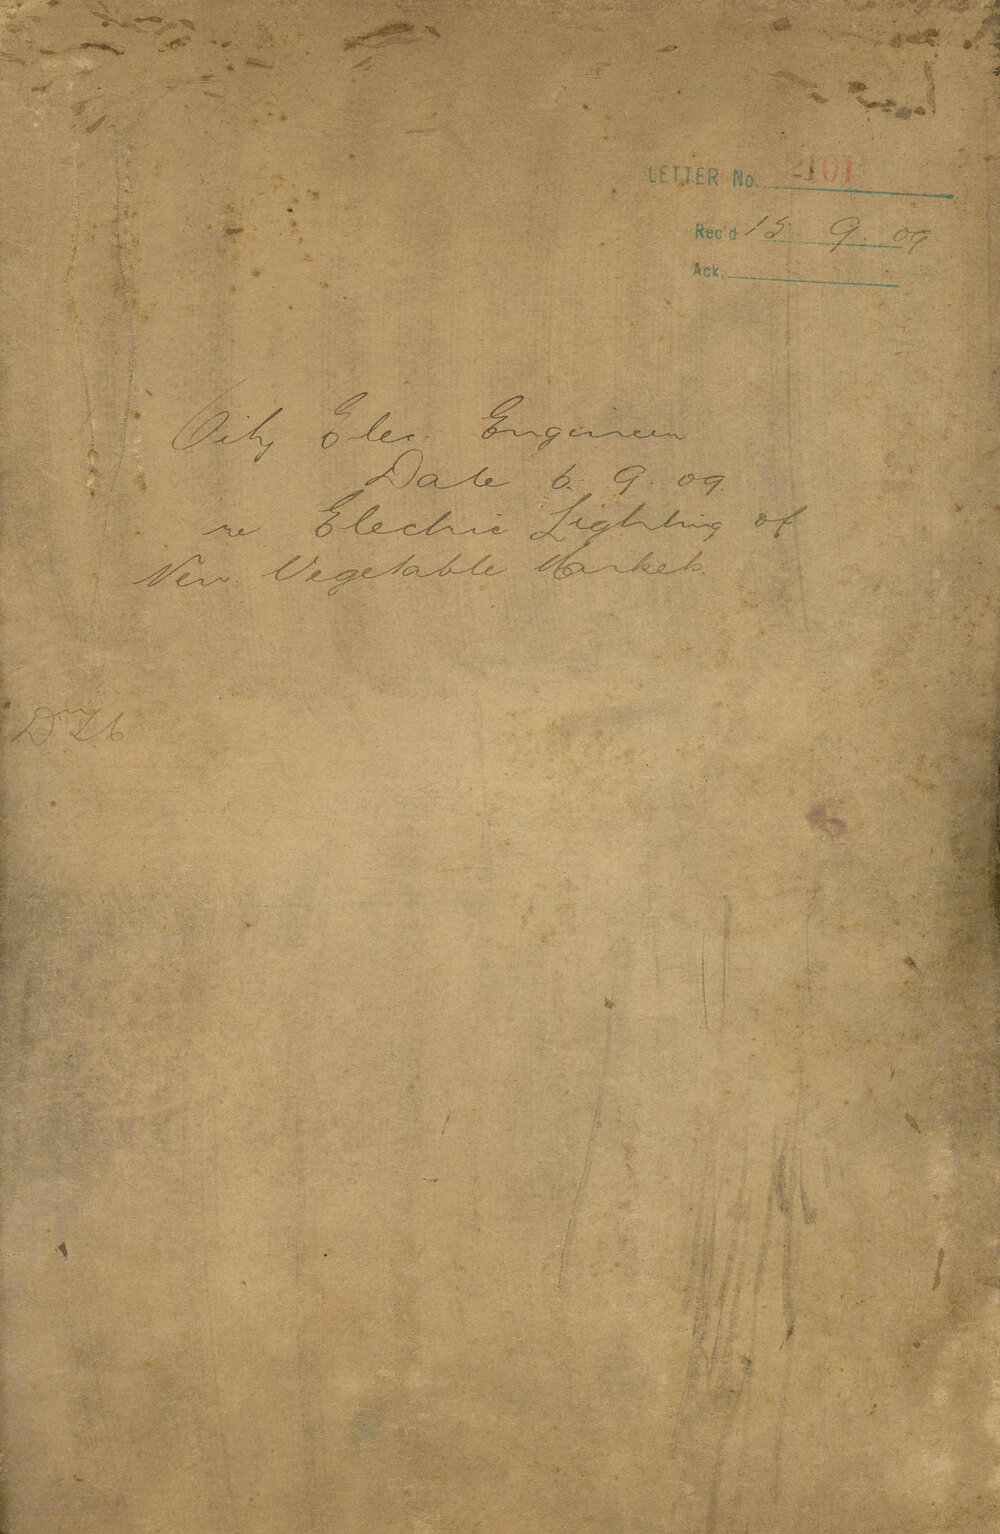 LETTER No. 2101
Rec'd 15 9. 09
Ack.
City Elec. Engineer
Date 6. 9. 09.
re Electric Lighting of
New Vegetable Markets.